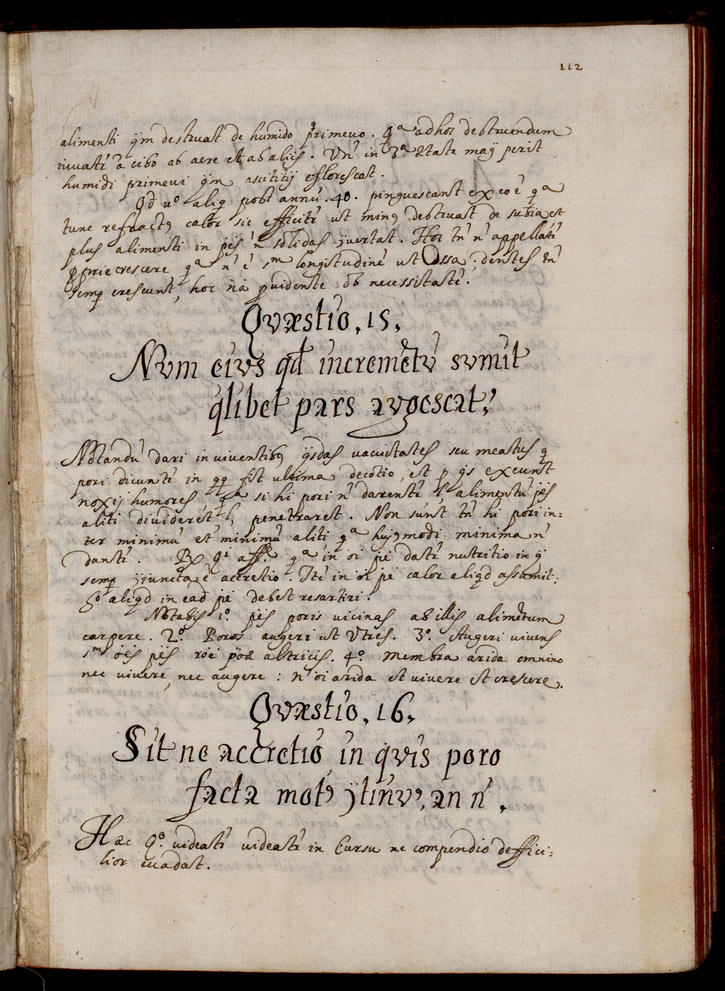 112
alimenti qm destruat de humido primeuo. qª ad hoc destruendum
iuuat' a cibo ab aere et ab aliis. Vn' in 3ª ætate magis perit
humidi primeui qm ascititij eflorescat.
Qd uº aliq post annū. 40. pinguescant ex eo ē qª
tunc refract9 calor sic efficit' ut min9 destruat de subia et
plus alimenti in ptes ñ solidas uertat. Hoc tn' n' appellat'
proprie crescere qª n' ē sm longitudinē ut Ossa: dentes tn'
semp crescunt, hoc na prouidente ob necessitatē.
Quæstio. 15.
Num eius qd incremētū sumit
qlibet pars augescat?
Notandū dari in uiuentib9 qsdas uacuitates seu meatus q
pori dicunt' in qq fit ultima decotio, et p qs exeunt
noxij humores qª si hi pori n' darent' l' alimentū ptes
aliti dividerēt l' penetraret. Non sunt tn' hi pori in=
ter minimū et minimū aliti qª huj9modi minima n'
dant'. R. Qi aff. qª in oi pe dat' nutritio in q
semp iuncta ē accretio. Itē in oi pe calor aliqd assumit:
go aliqd in ead pe debet resarsiri.
Notabis 1º. ptes poris vicinas ab illis alimētum
carpere. 2º. Poros augeri ut Vtres. 3º. Augeri uiuens
sm oēs ptes roē poæ altricis. 4º. Membra arida omnino
nec vivere, nec augere: n' oi arida et uiuere et crescere.
Quæstio. 16.
Sit ne accretio in quis poro
facta mot9 ɔtinu9, an n'.
Hæc Qº. uideat' uideat' in Cursu ne compendio deffici=
lior euadat.